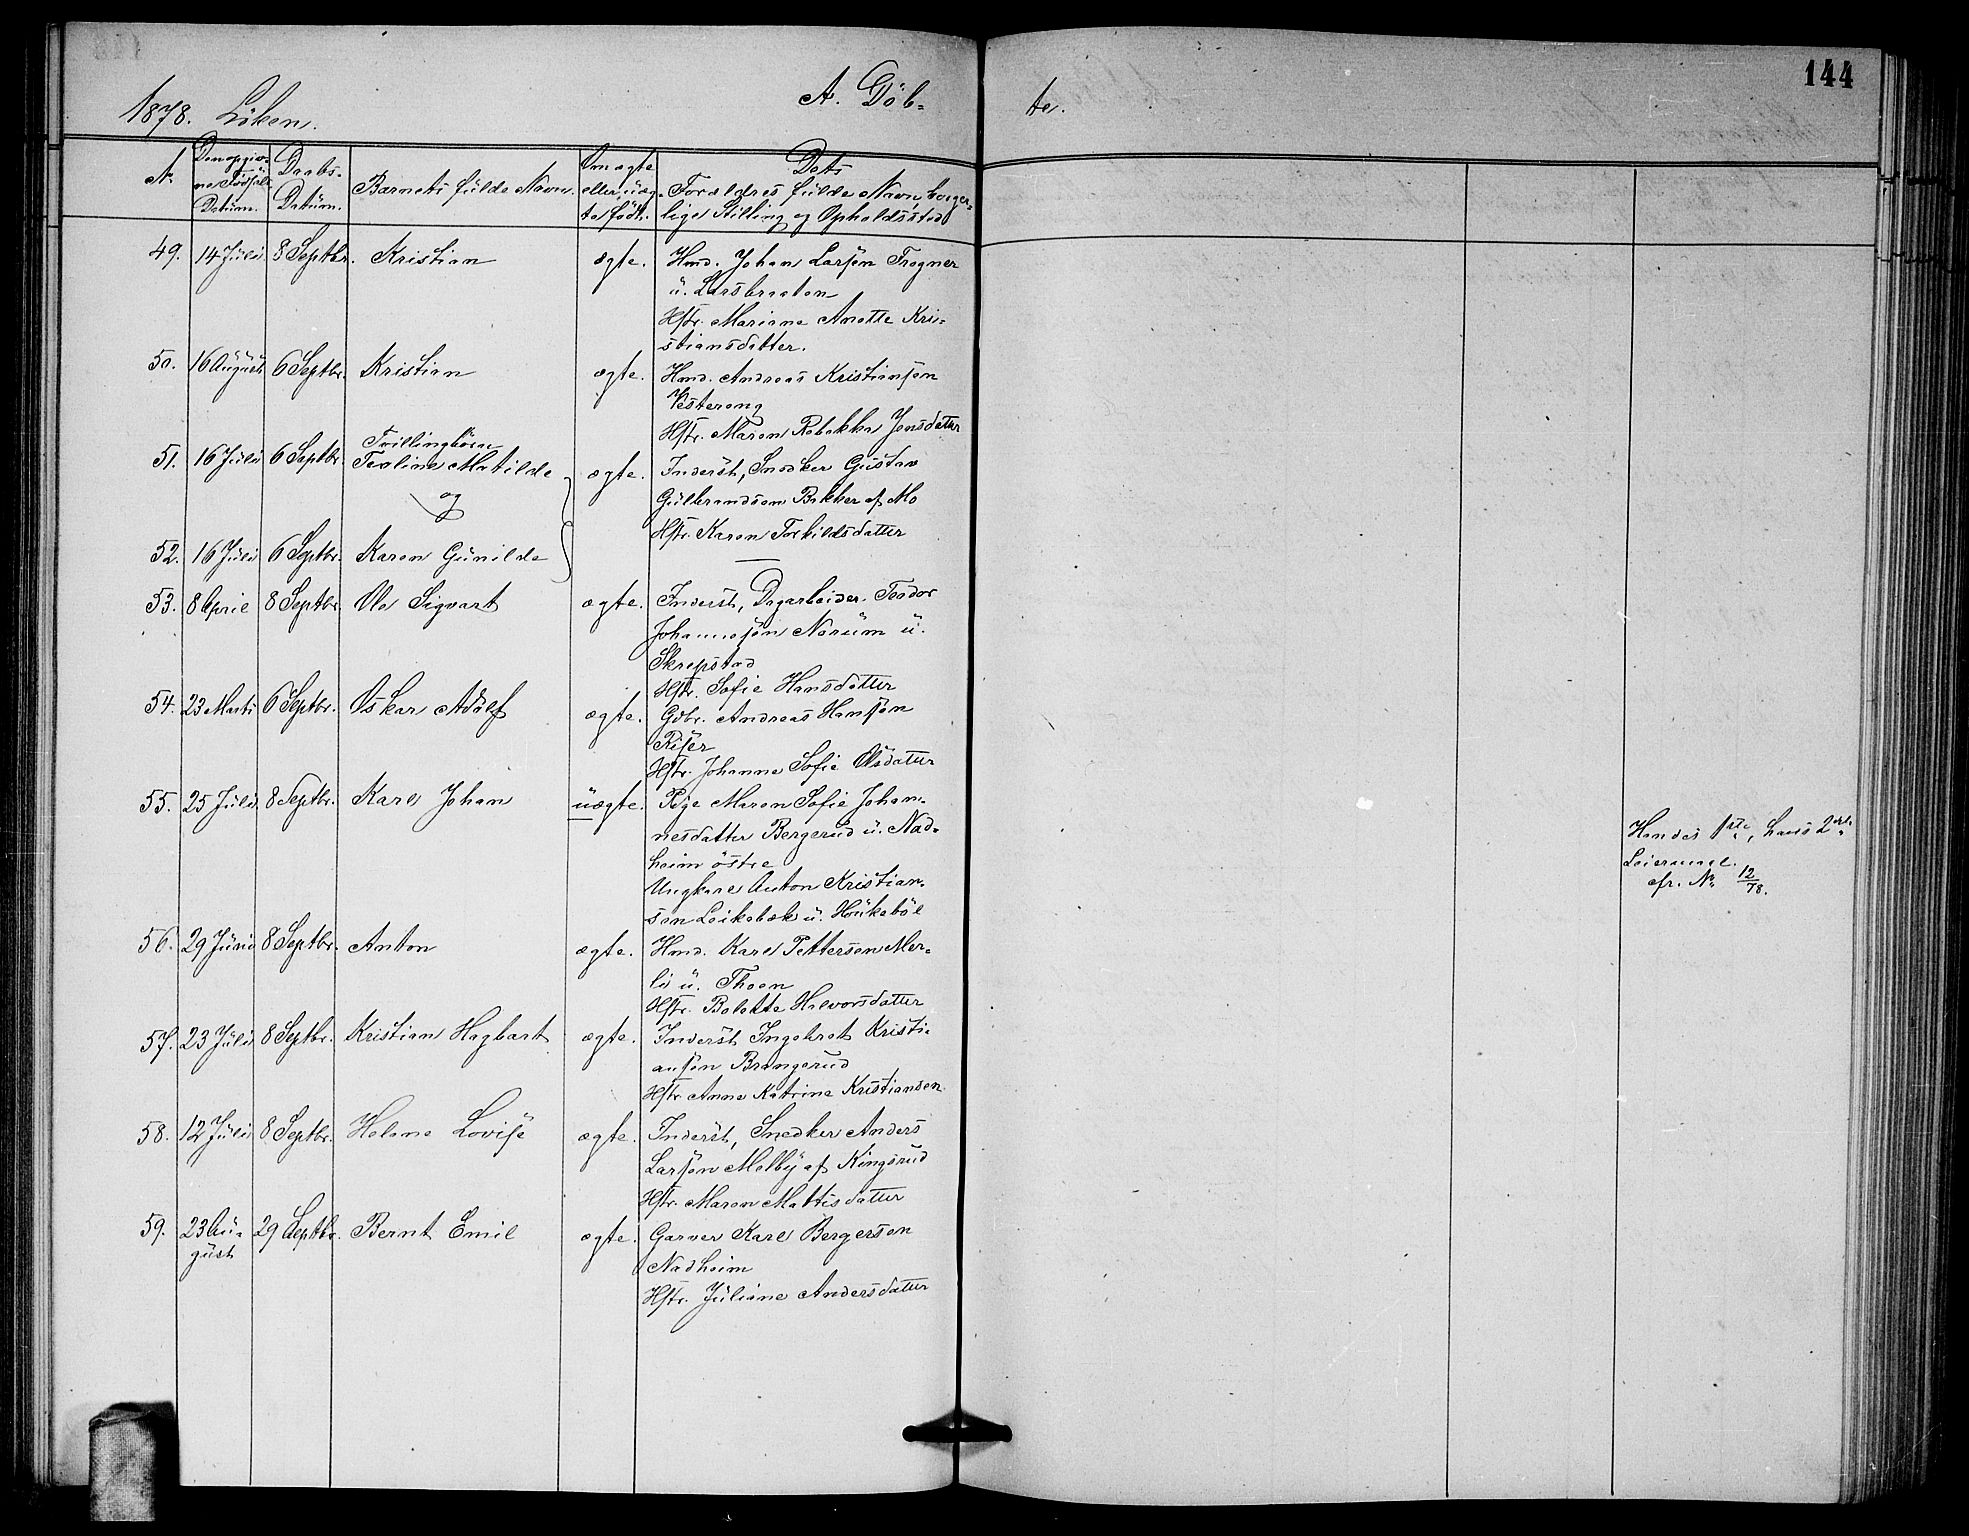 144
1878. Löken.
A. Döb-
te.
No
Den opgiv-
ne Födsels
Datum.
Daabs-
Datum.
Barnets fulde Navn.
Om ægte
eller uæg-
te födt.
Dets
Forældres fulde Navn, borger-
lige Stilling og Opholdssted
49. 14 Juli 8 Septbr. Kristian ægte. Hmd. Johan Larsen Frogner
u. Larsbraaten
Hstr. Mariane Anette Kri-
stiansdatter.
50. 16 August 6 Septbr. Kristian ægte. Hmd. Andreas Kristiansen
Vestereng
Hstr. Maren Rebekka Jensdatter
Tvillingbörn
51. 16 Juli 6 Septbr. Teoline Matilde ægte. Inderst, Snedker Gustav
og
Gulbrandsen Bakker af Mo
Hstr. Karen Torkildsdatter
52. 16 Juli 6 Septbr. Karen Gunilde —
53. 8 April 8 Septbr. Ole Sigvart ægte. Inderst, Dagarbeider Teodor
Johannesen Narum u.
Skrepstad
Hstr. Sofie Hansdatter
54. 23 Marts 6 Septbr. Oskar Adolf ægte. Gdbr. Andreas Hansen
Riser
Hstr. Johanne Sofie Olsdatter
55. 25 Juli 8 Septbr. Karl Johan uægte. Pige Maren Sofie Johan-
nesdatter Bergerud u. Nad-
heim östre
Ungkarl Anton Kristian-
sen Leikebæk u. Haukeböl
Hendes 1ste, hans 2det
Leiermaal.
cfr. No 12/78.
56. 29 Juni 8 Septbr. Anton ægte. Hmd. Karl Pettersen Mer-
li u. Thoen
Hstr. Bolette Halvorsdatter
57. 23 Juli 8 Septbr. Kristian Hagbart ægte. Inderst Ingebret Kristi-
ansen Brangerud
Hstr. Anne Katrine Kristiansen
58. 12 Juli 8 Septbr. Helene Lovise ægte. Inderst, Snedker Anders
Larsen Melby af Kingsrud
Hstr. Maren Mattisdatter
59. 23 Au- 29 Septbr. Bernt Emil ægte. Garver Karl Bergersen
gust
Nadheim
Hstr. Juliane Andersdatter